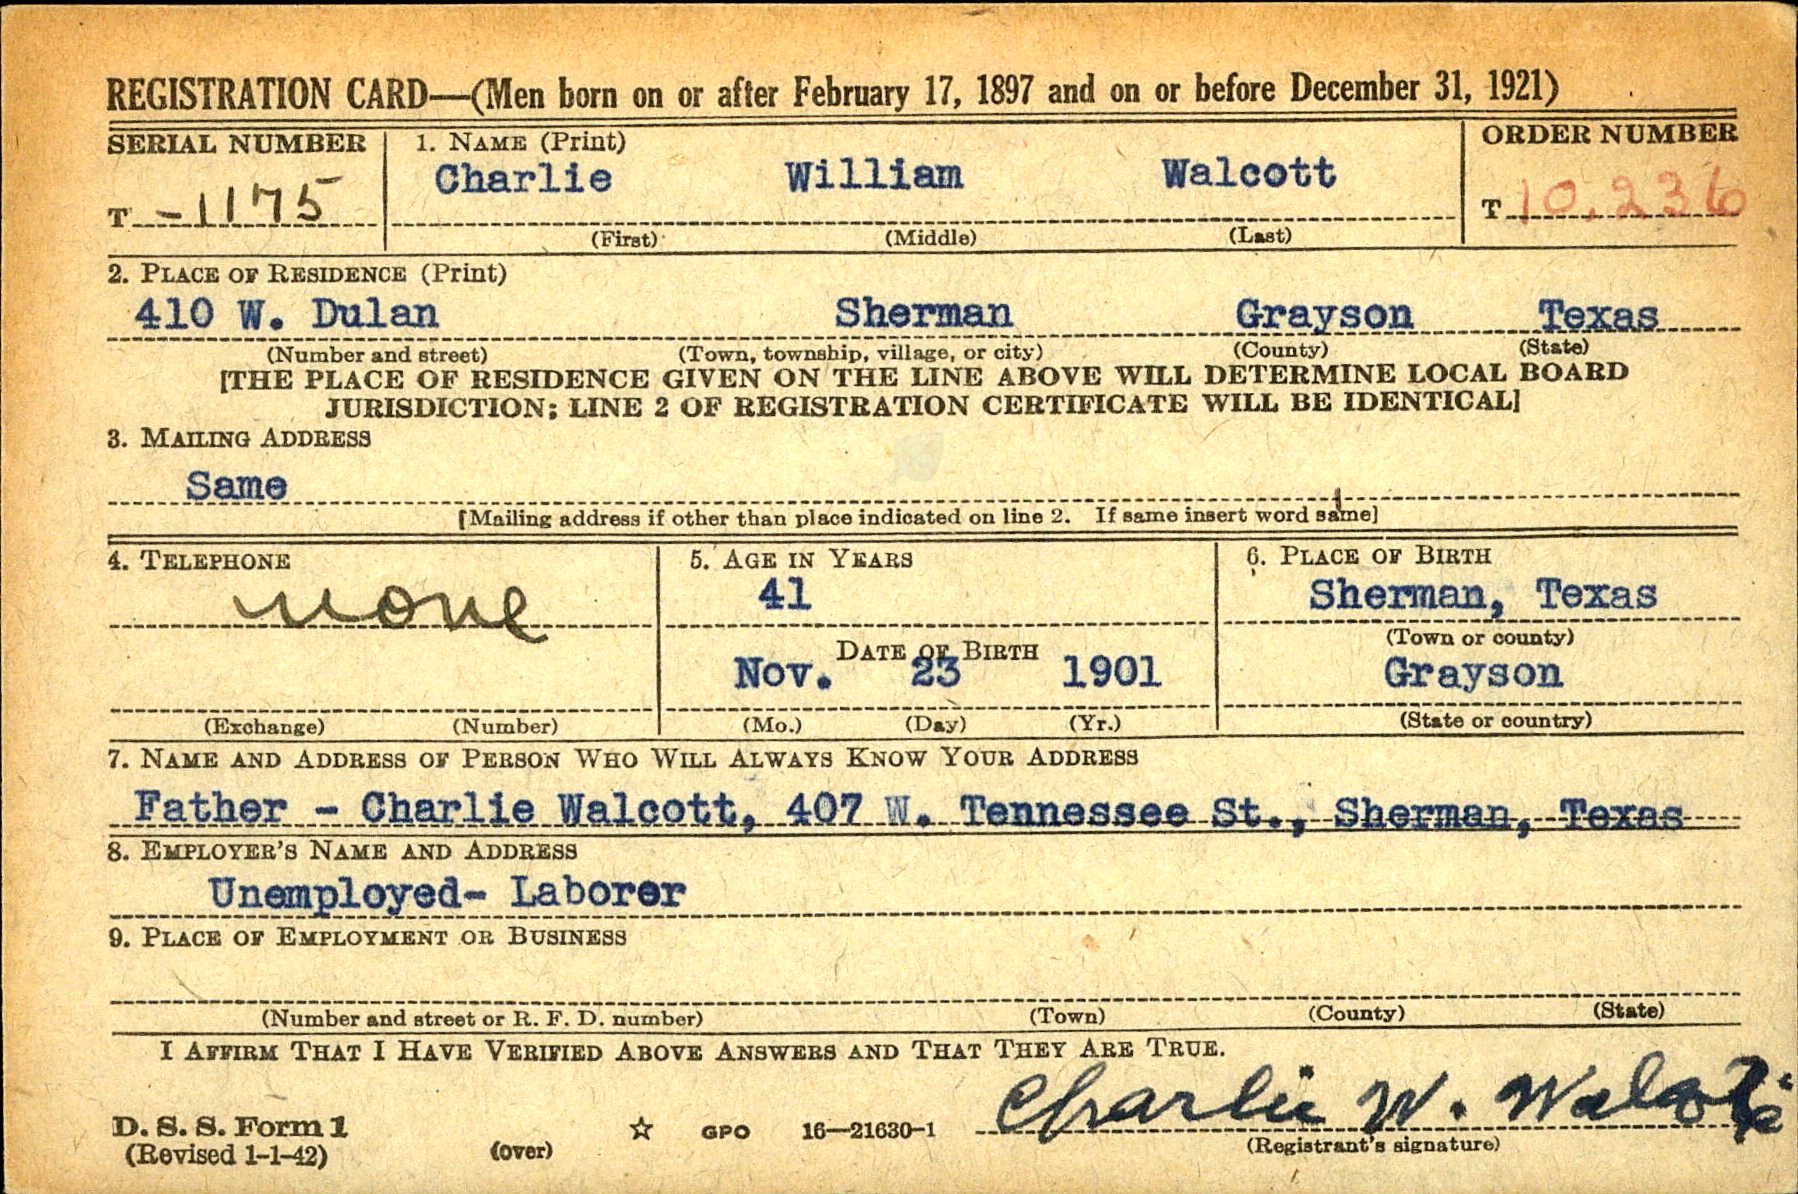 REGISTRATION CARD—(Men born on or after February 17, 1897 and on or before December 31, 1921)
SERIAL NUMBER 1. NAME (Print) ORDER NUMBER
Charlie William Walcott
T -1175 T 10,236
(First) (Middle) (Last)
2. PLACE OF RESIDENCE (Print)
410 W. Dulan Sherman Grayson Texas
(Number and street) (Town, township, village, or city) (County) (State)
[THE PLACE OF RESIDENCE GIVEN ON THE LINE ABOVE WILL DETERMINE LOCAL BOARD
JURISDICTION; LINE 2 OF REGISTRATION CERTIFICATE WILL BE IDENTICAL]
3. MAILING ADDRESS
Same
[Mailing address if other than place indicated on line 2. If same insert word same]
4. TELEPHONE 5. AGE IN YEARS 6. PLACE OF BIRTH
none 41 Sherman, Texas
(Town or county)
DATE OF BIRTH
Nov. 23 1901 Grayson
(Exchange) (Number) (Mo.) (Day) (Yr.) (State or country)
7. NAME AND ADDRESS OF PERSON WHO WILL ALWAYS KNOW YOUR ADDRESS
Father - Charlie Walcott, 407 W. Tennessee St., Sherman, Texas
8. EMPLOYER'S NAME AND ADDRESS
Unemployed- Laborer
9. PLACE OF EMPLOYMENT OR BUSINESS
(Number and street or R. F. D. number) (Town) (County) (State)
I AFFIRM THAT I HAVE VERIFIED ABOVE ANSWERS AND THAT THEY ARE TRUE.
Charlie W. Walcott
D. S. S. Form 1
(Revised 1-1-42) (over) ☆ GPO 16—21630-1 (Registrant's signature)